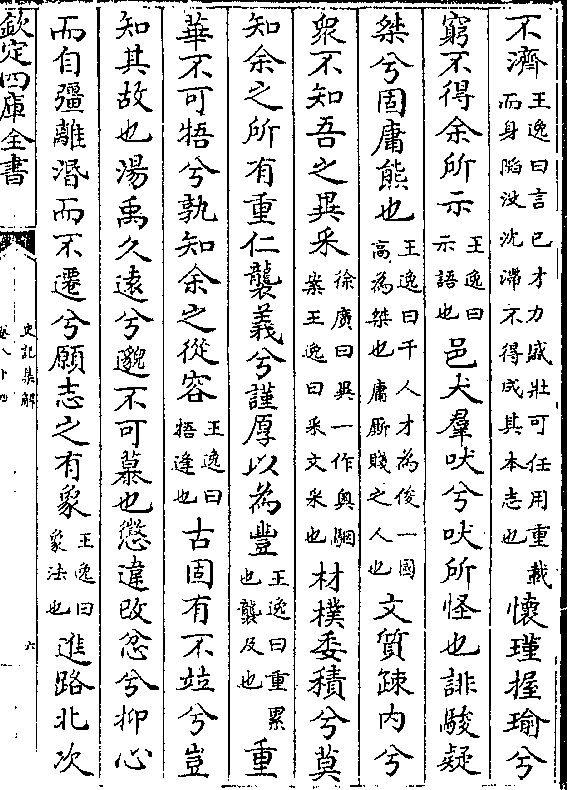 不濟王逸曰言已才力盛壯可任用重載而身陷没沈滯不得成其本志也懷瑾握瑜兮
窮不得余所示王逸曰示語也邑犬羣吠兮吠所怪也誹駿疑
桀兮固庸態也王逸曰千人才為俊一國高為桀也庸厮賤之人也文質疎内兮
衆不知吾之異采徐廣曰異一作奥駰案王逸曰采文采也材樸委積兮莫
知余之所有重仁襲義兮謹厚以為豐王逸曰重累也襲及也重
華不可牾兮孰知余之從容王逸曰牾逢也古固有不竝兮豈
知其故也湯禹久遠兮邈不可慕也懲違改忿兮抑心
而自彊離湣而不遷兮願志之有象王逸曰象法也進路北次
欽定四庫全書
史記集解
卷八十四
六